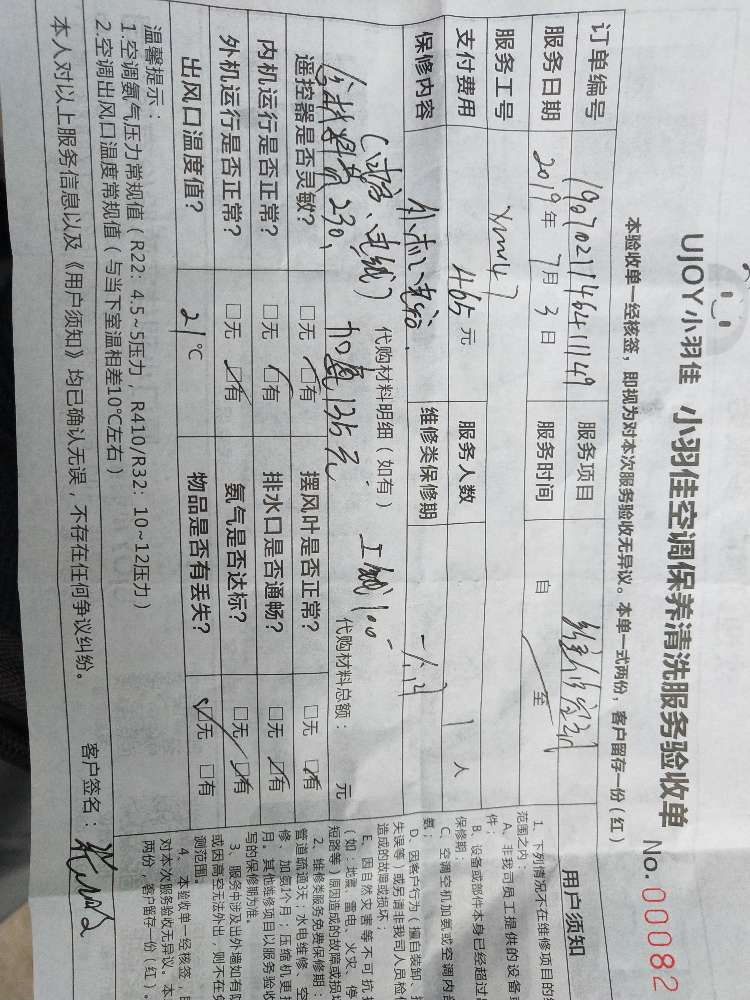 UJOY小羽佳 小羽佳空调保养清洗服务验收单
No. 00082
本验收单一经核签，即视为对本次服务验收无异议。本单一式两份，客户留存一份（红）
订单编号 服务项目
服务日期 2019年7月3日 服务时间 自 至
服务工号
支付费用 465元 服务人数 1人
保修内容 维修类保修期 一个月
代购材料明细（如有） 代购材料总额： 元
材料费230， 加氨135元， 工钱100
遥控器是否灵敏？ □无 □有 摆风叶是否正常？ □无 □有
内机运行是否正常？ □无 □有 排水口是否通畅？ □无 □有
外机运行是否正常？ □无 □有 氨气是否达标？ □无 □有
出风口温度值？ 21℃ 物品是否有丢失？ □无 □有
温馨提示：
1.空调氨气压力常规值（R22：4.5~5压力，R410/R32：10~12压力）
2.空调出风口温度常规值（与当下室温相差10℃左右）
本人对以上服务信息以及《用户须知》均已确认无误，不存在任何争议纠纷。
客户签名：
用户须知
1、下列情况不在维修项目的
范围之内：
A、非我司员工提供的设备
件；
B、设备或部件本身已经超过
保修期；
C、空调空机加氨或空调内
氨；
D、因客户行为（擅自装卸、
失误等）或另请非我司人员检
造成的故障或损坏；
E、因自然灾害等不可抗
（如：地震、雷电、火灾、停
短路等）原因造成的故障或损
2、维修类服务免费保修期：
管道疏通3天；水电维修、空
修、加氨1个月；压缩机更
月。其他维修项目以服务验收
写的保修期为准。
3、服务中涉及出外墙如有
或因高空无法外出，则不在
测范围。
4、本验收单一经核签，
对本次服务验收无异议。本
两份，客户留存一份（红）。